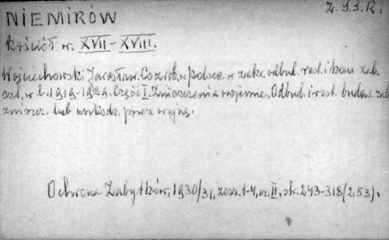 NIEMIRÓW
Z.S.S.R.
Kościół w. XVII-XVIII.
Wojciechowski Jarosław. Co zrob. w Polsce w zakr. odbud. rest. i kons. zab.
szt. w l. 1919-1929. Część I. Zniszczenia wojenne. Odbud. i rest. budow. zab.
zniszcz. lub uszkodz. przez wojnę.
Ochrona Zabytków, 1930/31, zesz. 1-4, cz. II, str. 243-318 (253).